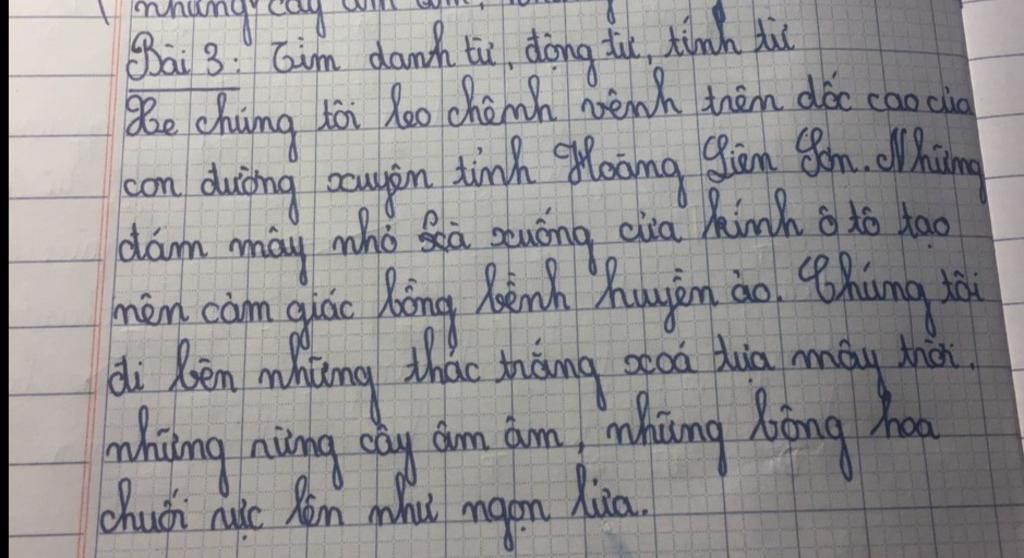 những cây
Bài 3: Tìm danh từ, động từ, tính từ
Xe chúng tôi leo chênh vênh trên dốc cao của
con đường xuyên tỉnh Hoàng Liên Sơn. Những
đám mây nhỏ sà xuống cửa kính ô tô tạo
nên cảm giác bồng bềnh huyền ảo. Chúng tôi
đi bên những thác trắng xoá tựa mây trời.
những rừng cây âm âm, những bông hoa
chuối rực lên như ngọn lửa.